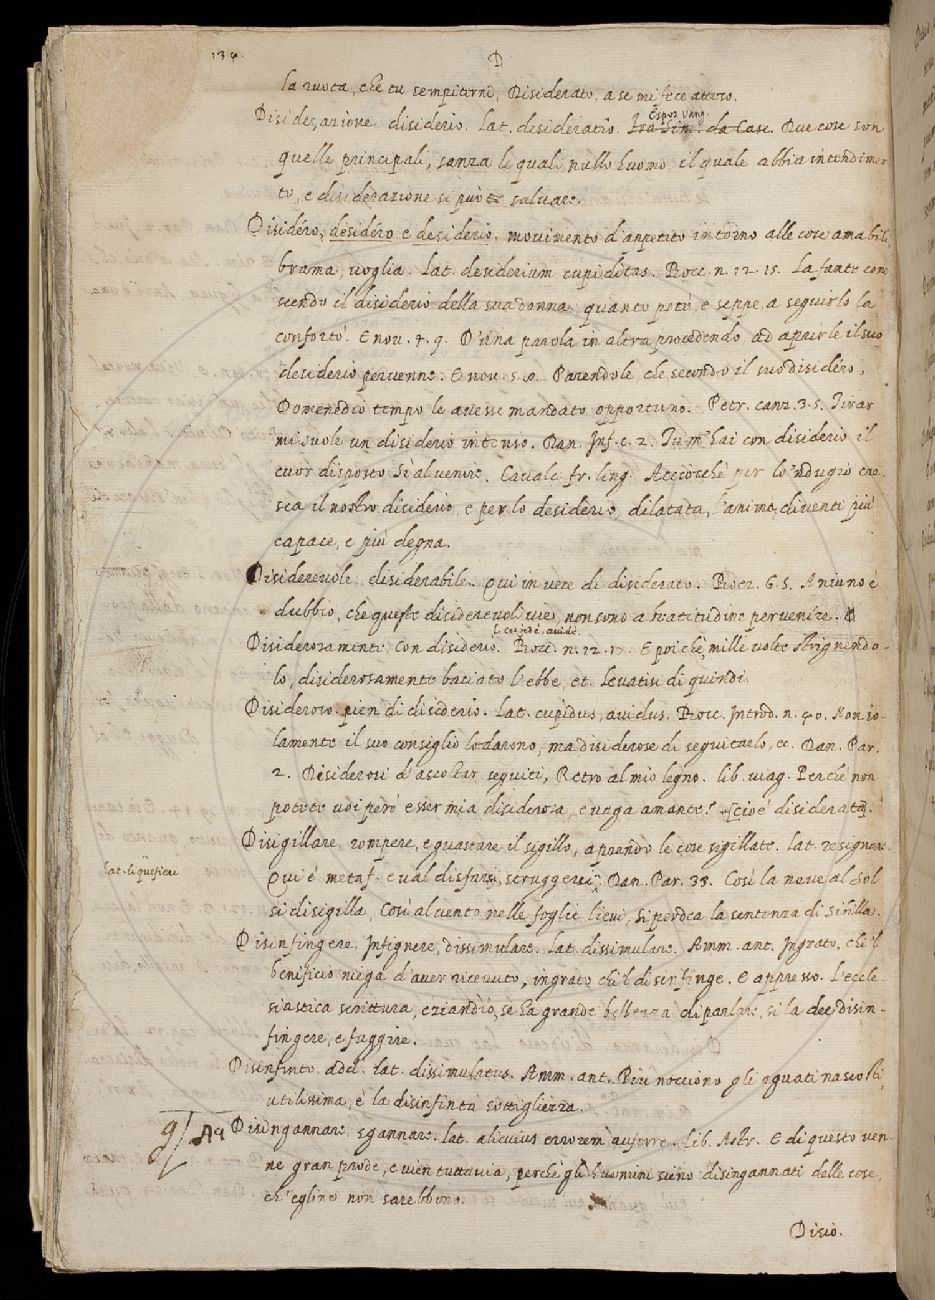 134.
D
la ruota, che tu sempiterni, Disiderato, a se mi fece atteso.
Espos. Vang.
Disiderazione. disiderio. Lat. desideratio. Fra Sim. da Casc. Due cose son
quelle principali, sanza le quali nullo huomo il quale abbia intendimen-
to, e disiderazione si può salvare.
Disidéro, desidéro e desiderio. movimento d'appetito intorno alle cose amabili,
brama, voglia. Lat. desiderium cupiditas. Bocc. n. 12. 15. La fante cono-
scendo il disiderio della sua donna, quanto potè, e seppe, a seguirlo la
confortò. E nov. 7. 9. D'una parola in altra procedendo, ad aprirle il suo
desiderio pervenne. E nov. Parendole che secondo il suo disidéro,
Domeneddio tempo le avesse mandato opportuno. Petr. canz. 3. 5. Tirar
mi suole un disiderio intenso. Dan. Inf. c. 2. Tu m'hai con disiderio il
cuor disposto Sì al venire. Cavalc. fr. ling. Acciocchè per lo 'ndugio cre-
sca il nostro disiderio, e per lo desiderio, dilatata, l'anima, diventi più
capace, e più degna.
Disiderevole. disiderabile. Qui in vece di disiderato. Bocz. 6. 5. A niuno è
dubbio, che queste disiderevoli vie, non sono a beatitudine pervenire.
L. cupidè, avidè.
Disiderosamente con disiderio. Bocc. n. 12. 17. E poi chè, mille volte strignendo-
lo, disiderosamente baciato l'ebbe, et. Levatisi di quindi.
Disideroso. pien di disiderio. Lat. cupidus, avidus. Bocc. Introd. n. 40. Non so-
lamente il suo consiglio lodarono, ma disiderose di seguitarlo, ec. Dan. Par.
2. Desiderosi d'ascoltar seguiti, Retro al mio legno. lib. viag. Perchè non
potete voi però esser mia disiderosa, e vaga amante? [cioè disiderata].
Disigillare. rompere, e guastare il sigillo, aprendo le cose sigillate. Lat. resignare.
lat. liquefieri
Qui è metaf. e val disfarsi, struggersi. Dan. Par. 33. Così la neve al Sol
si disigilla, Così al vento nelle foglie lievi, Si perdea la sentenza di Sibilla.
Disinfingere. Infignere, dissimulare. Lat. dissimulare. Amm. ant. Ingrato, chi 'l
beneficio niega d'aver ricevuto, ingrato chi 'l disinfinge. E appresso. L'eccle-
siastica scrittura, eziandio, se ha grande bellezza di parlare, si la dee disin-
fingere, e fuggire.
Disinfinto. add. Lat. dissimulatus. Amm. ant. Più nocciono gli aguati nascosti,
utilissima, è la disinfinta sottigliezza.
Disingannare. sgannare. lat. alicuius errorem auferre. Lib. Astr. E di questo ven-
ne gran prode, e vien tuttavia, perchè gli huomini sieno disingannati delle cose,
ch'eglino non sarebbono.
Disio.